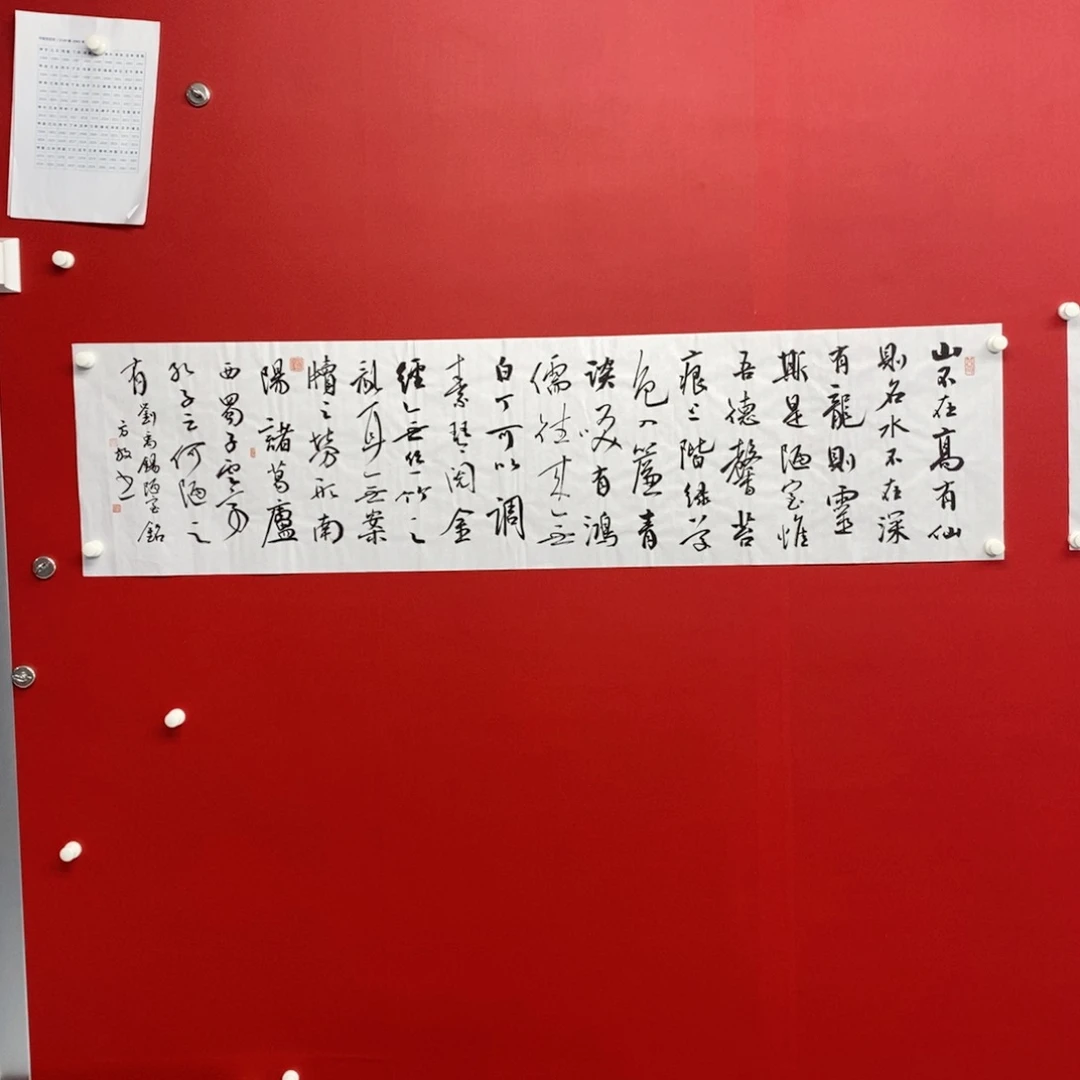 山不在高有仙
則名水不在深
有龍則靈
斯是陋室惟
吾德馨苔
痕上階綠草
色入簾青
談笑有鴻
儒往來無
白丁可以調
素琴閱金
經無絲竹之
亂耳無案
牘之勞形南
陽諸葛廬
西蜀子雲亭
孔子云何陋之
有
劉禹錫陋室銘